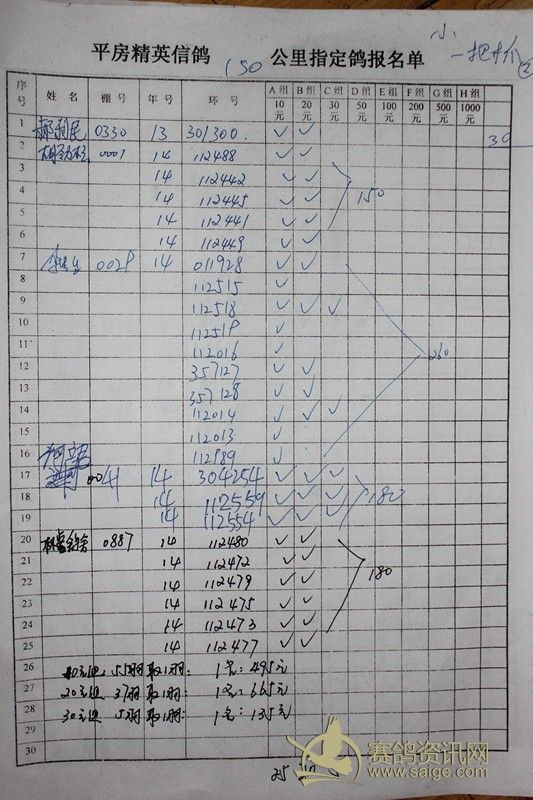 小
一把抓②
平房精英信鸽 150 公里指定鸽报名单
序号 姓名 棚号 年号 环号 A组10元 B组20元 C组30元 D组50元 E组100元 F组200元 G组500元 H组1000元
1 郝利民 0330 13 301300 ✓ ✓ 30
2 0007 14 112488 ✓ ✓
3 14 112442 ✓ ✓
4 14 112445 ✓ ✓ 150
5 14 112441 ✓ ✓
6 14 112449 ✓ ✓
7 14 011928 ✓ ✓
8 112515 ✓
9 112518 ✓ ✓ ✓
10 112519 ✓
11 112016 ✓ 260
12 357127 ✓ ✓
13 357128 ✓ ✓
14 112014 ✓ ✓ ✓
15 112013 ✓
16 112989 ✓
17 0041 14 304254 ✓ ✓ ✓
18 14 112559 ✓ ✓ ✓ 180
19 14 112554 ✓ ✓ ✓
20 0887 14 112480 ✓ ✓
21 14 112472 ✓ ✓
22 14 112479 ✓ ✓ 180
23 14 112475 ✓ ✓
24 14 112473 ✓ ✓
25 14 112477 ✓ ✓
26 10元组 55羽取1羽: 1名: 495元
27 20元组 37羽取1羽: 1名: 665元
28 30元组 5羽取1羽: 1名: 135元
29
30
25
赛鸽资讯网
www.saige.com